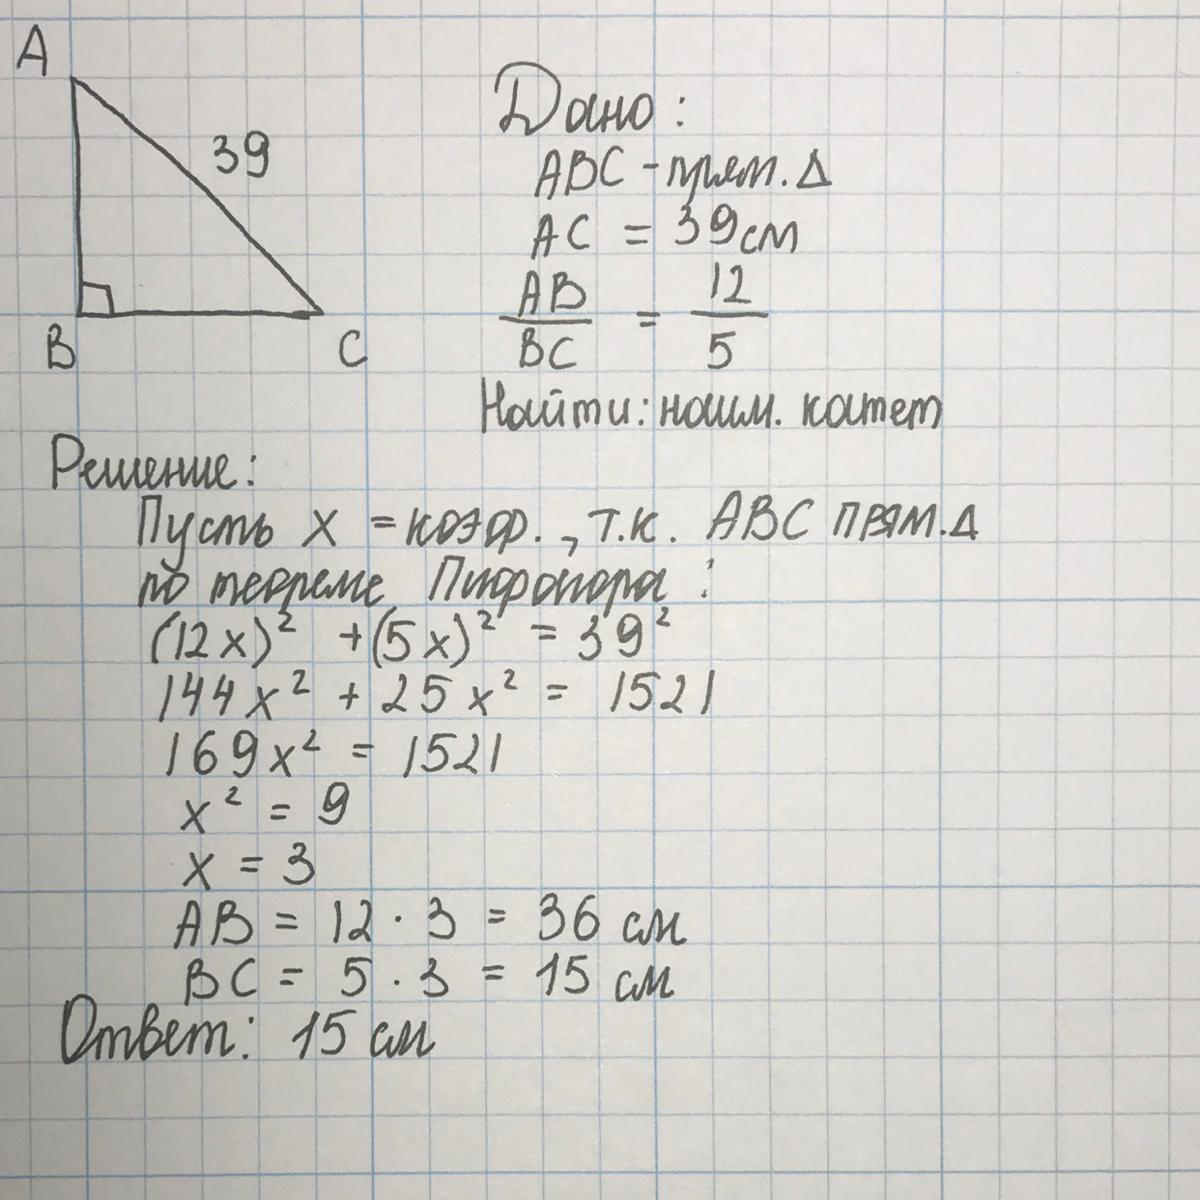 A
39
B
C
Дано:
ABC - прям. Δ
AC = 39 см
AB/BC = 12/5
Найти: наим. катет
Решение:
Пусть x = коэф., т.к. ABC прям. Δ
по теореме Пифагора:
(12x)² + (5x)² = 39²
144x² + 25x² = 1521
169x² = 1521
x² = 9
x = 3
AB = 12 · 3 = 36 см
BC = 5 · 3 = 15 см
Ответ: 15 см